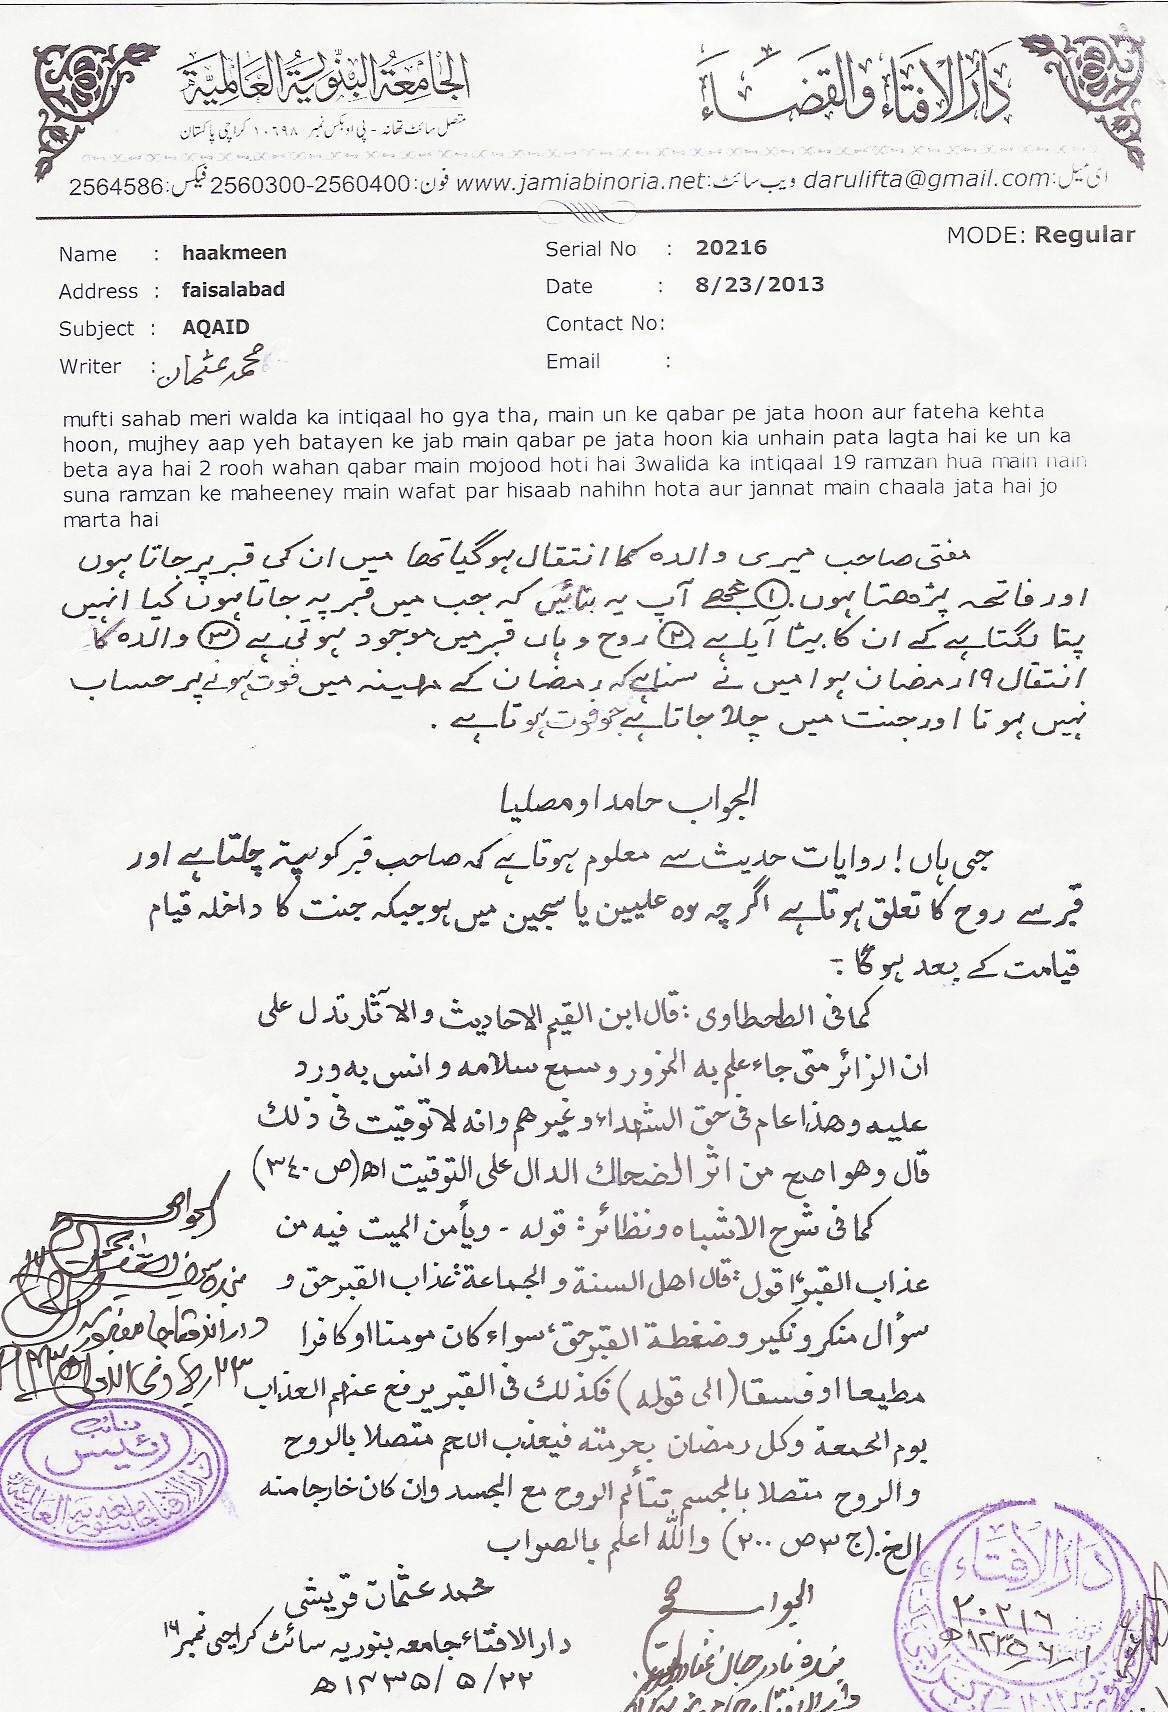 دَارُالاِفتَاءِ وَالقَضَاءِ
الجَامِعَةُ البِنُّورِيَّة العَالَمِيَّة
متصل سائٹ تھانہ - پی او بکس نمبر ۱۰۶۹۸ کراچی پاکستان
ای میل:darulifta@gmail.com ویب سائٹ:www.jamiabinoria.net فون:2560300-2560400 فیکس:2564586
MODE: Regular
Name : haakmeen Serial No : 20216
Address : faisalabad Date : 8/23/2013
Subject : AQAID Contact No:
Writer : محمد عثمان Email :
mufti sahab meri walda ka intiqaal ho gya tha, main un ke qabar pe jata hoon aur fateha kehta
hoon, mujhey aap yeh batayen ke jab main qabar pe jata hoon kia unhain pata lagta hai ke un ka
beta aya hai 2 rooh wahan qabar main mojood hoti hai 3walida ka intiqaal 19 ramzan hua main nain
suna ramzan ke maheeney main wafat par hisaab nahihn hota aur jannat main chaala jata hai jo
marta hai
مفتی صاحب میری والدہ کا انتقال ہوگیا تھا میں ان کی قبر پر جاتا ہوں
اور فاتحہ پڑھتا ہوں. ① مجھے آپ یہ بتائیں کہ جب میں قبر پہ جاتا ہوں کیا انہیں
پتا لگتا ہے کے ان کا بیٹا آیا ہے ② روح وہاں قبر میں موجود ہوتی ہے ③ والدہ کا
انتقال ۱۹رمضان ہوا میں نے سنا ہے کہ رمضان کے مہینہ میں فوت ہونے پر حساب
نہیں ہوتا اور جنت میں چلا جاتا ہے جو فوت ہوتا ہے .
الجواب حامدا ومصلیا
جی ہاں! روایات حدیث سے معلوم ہوتا ہے کہ صاحب قبر کو پتہ چلتا ہے اور
قبر سے روح کا تعلق ہوتا ہے اگرچہ وہ علیین یا سجین میں ہو جبکہ جنت کا داخلہ قیام
قیامت کے بعد ہوگا :-
کما فی الطحطاوی : قال ابن القیم الاحادیث والآثار تدل علی
ان الزائر متی جاء علم به المزور وسمع سلامه وانس به ورد
علیه وهذا عام فی حق الشهداء وغیرهم وانه لا توقیت فی ذلك
قال وهو اصح من اثر الضحاك الدال علی التوقیت اھ (ص ۳٤۰)
کما فی شرح الاشباه ونظائر : قوله - ویأمن المیت فیه من
عذاب القبر" اقول : قال اهل السنة والجماعة : عذاب القبر حق و
سؤال منکر ونکیر وضغطة القبر حق، سواء کان مومنا او کافرا
مطیعا او فسقا (الی قوله) فکذلك فی القبر یرفع عنهم العذاب
یوم الجمعة وکل رمضان بحرمته فیعذب اللحم متصلا بالروح
والروح متصلا بالجسم تتألم الروح مع الجسد وان کان خارجا منه
الخ. (ج ۳ ص ۲۰۰) واللہ اعلم بالصواب
محمد عثمان قریشی
دارالافتاء جامعہ بنوریہ سائٹ کراچی نمبر ۱۶
۲۲/۵/۱۴۳۵ھ
الجواب صحیح
بندہ نادر جان
الجواب صحیح
نائب
رئیس
دَارُالاِفتَاء
۲۰۲۱۶